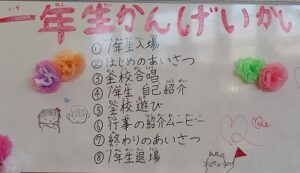 一年生かんげいかい
① 1年生入場
② はじめのあいさつ
③ 全校合唱
④ 1年生 自己紹介
⑤ 全校遊び
⑥ 行事の紹介ムービー
⑦ 終わりのあいさつ
⑧ 1年生退場